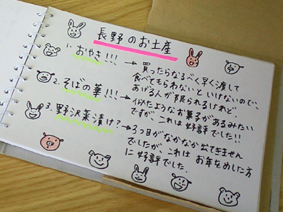 長野のお土産
1. おやき!!! → 買ったらなるべく早く渡して
食べてもらわないといけないので、
あげる人が限られるけれど…
2. そばの華!!! → 似たようなお菓子があるみたい
ですが、これは好評でした!!
3. 野沢菜漬け? → 3つ目がなかなか出てきません
でしたが、これは お年をめした方
に好評でした。